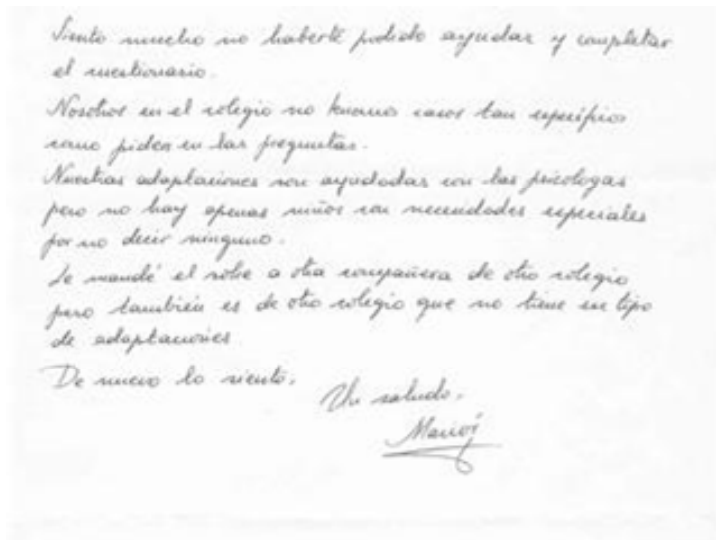 Siento mucho no haberte podido ayudar y completar
el cuestionario.
Nosotros en el colegio no tenemos casos tan específicos
como piden en las preguntas.
Nuestras adaptaciones son ayudadas con las psicólogas
pero no hay apenas niños con necesidades especiales
por no decir ninguno.
Le mandé el sobre a otra compañera de otro colegio
pero también es de otro colegio que no tiene tipo
de adaptaciones.
De nuevo lo siento.
Un saludo.